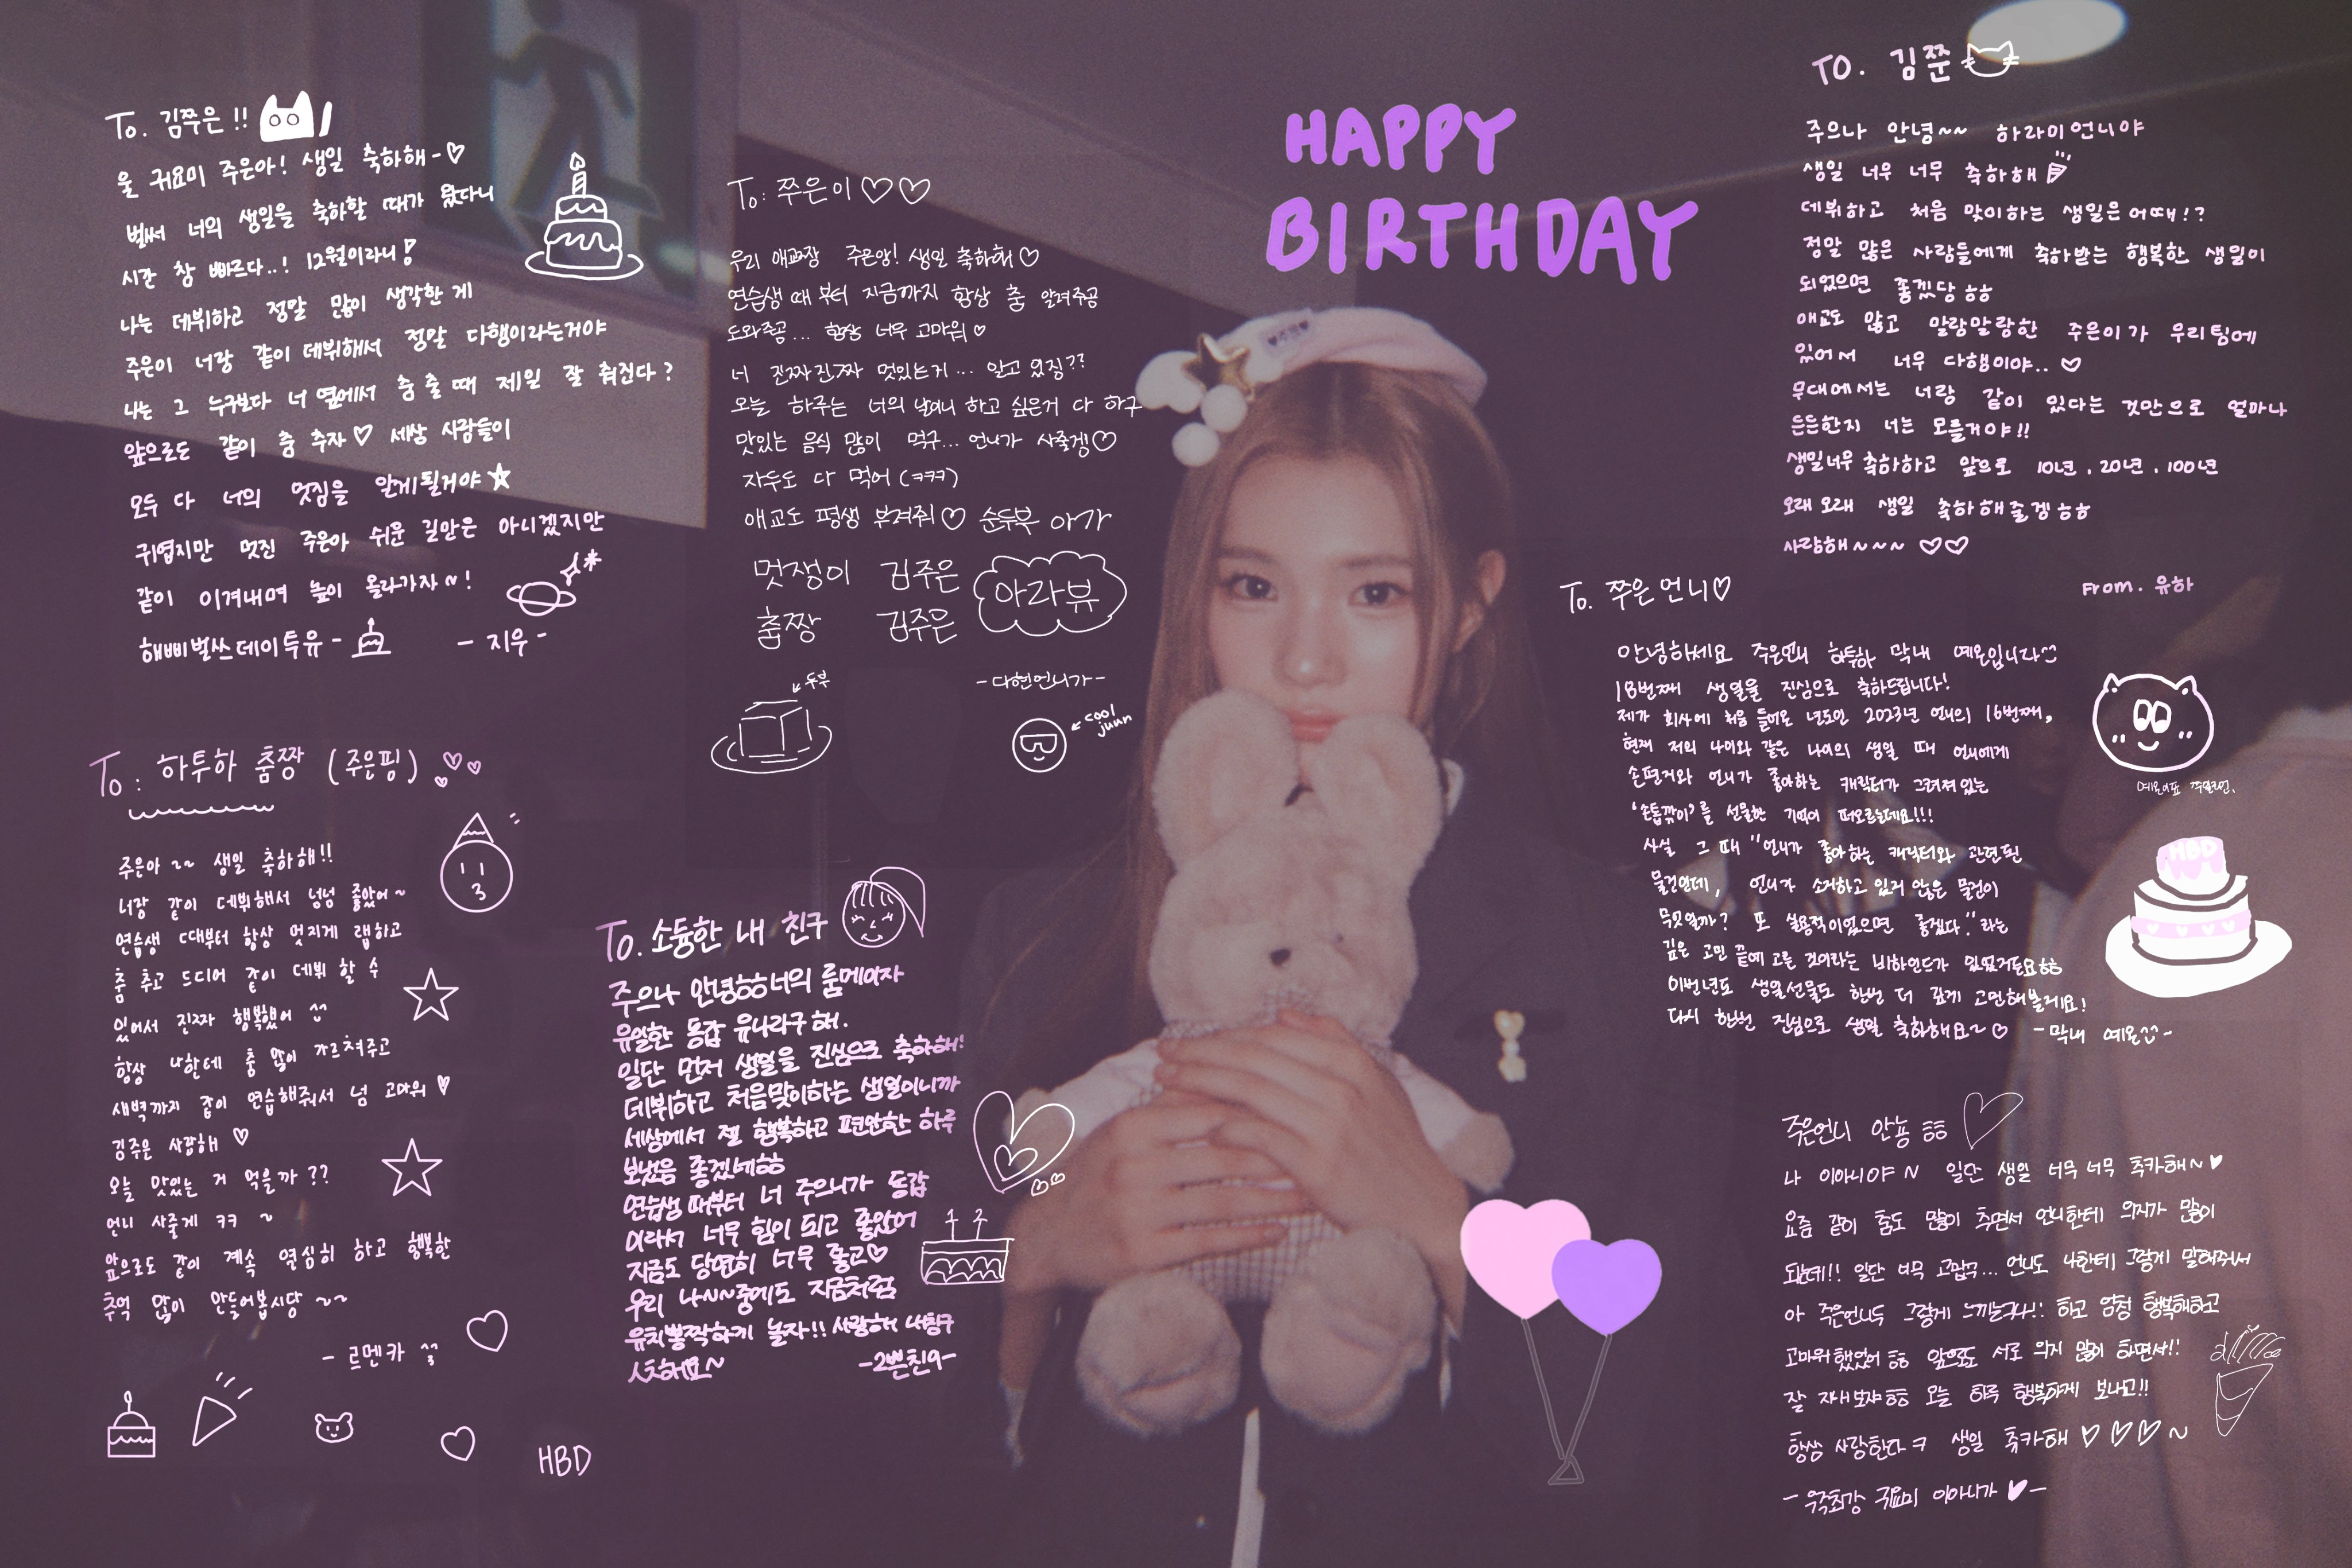 To. 김쭈은!!
울 귀요미 주은아! 생일 축하해-♡
벌써 너의 생일을 축하할 때가 왔다니
시간 참 빠르다..! 12월이라니!
나는 데뷔하고 정말 많이 생각한 게
주은이 너랑 같이 데뷔해서 정말 다행이라는거야
나는 그 누구보다 너 옆에서 춤 출 때 제일 잘 춰진다?
앞으로도 같이 춤 추자♡ 세상 사람들이
모두 다 너의 멋짐을 알게될거야☆
귀엽지만 멋진 주은아 쉬운 길만은 아니겠지만
같이 이겨내며 높이 올라가자~!
해삐벌쓰데이투유-
- 지우 -
To: 쭈은이♡♡
우리 애교장 주은앙! 생일 축하해♡
연습생 때부터 지금까지 항상 춤 알려주공
도와주공... 항상 너무 고마워♡
너 진짜진짜 멋있는거... 알고 있징??
오늘 하루는 너의 날이니 하고 싶은거 다 하구
맛있는 음식 많이 먹구... 언니가 사줄겡♡
자두도 다 먹어(ㅋㅋㅋ)
애교도 평생 부려줘♡ 순두부 아가
멋쟁이 김주은
춤짱 김주은
아라뷰
두부
-다현언니가-
cool
juun
HAPPY
BIRTHDAY
TO. 김쭌
주으나 안녕~~ 하라미언니야
생일 너무 너무 축하해
데뷔하고 처음 맞이하는 생일은어때!?
정말 많은 사람들에게 축하받는 행복한 생일이
되었으면 좋겠당ㅎㅎ
애교도 많고 말랑말랑한 주은이가 우리팀에
있어서 너무 다행이야.. ♡
무대에서는 너랑 같이 있다는 것만으로 얼마나
든든한지 너는 모를거야!!
생일너무축하하고 앞으로 10년, 20년, 100년
오래오래 생일 축하해줄겡ㅎㅎ
사랑해~~~ ♡♡
From. 유하
To. 쭈은언니♡
안녕하세요 주은언니 하투하 막내 예온입니다
18번째 생일을 진심으로 축하드립니다!
제가 회사에 처음 들어온 년도인 2023년 언니의 16번째,
현재 저의 나이와 같은 나이의 생일 때 언니에게
손편지와 언니가 좋아하는 캐릭터가 그려져있는
'손톱깎이'를 선물한 기억이 떠오르는데요!!!
사실 그 때 "언니가 좋아하는 캐릭터와 관련된
물건인데, 언니가 소지하고 있지 않은 물건이
무엇일까? 또 실용적이었으면 좋겠다."라는
깊은 고민 끝에 고른 것이라는 비하인드가 있었거든요ㅎㅎ
이번년도 생일선물도 한번 더 깊게 고민해볼게요!
다시 한번 진심으로 생일 축하해요~♡
-막내 예온-
HBD
To: 하투하 춤짱 (주은핑)
주은아~~ 생일 축하해!!
너랑 같이 데뷔해서 넘넘 좋았어~
연습생 때부터 항상 멋지게 랩하고
춤 추고 드디어 같이 데뷔 할 수
있어서 진짜 행복했어 ^^
항상 나한테 춤 많이 가르쳐주고
새벽까지 같이 연습해줘서 넘 고마워♥
김주은 사랑해 ♡
오늘 맛있는 거 먹을까??
언니 사줄게 ㅋㅋ ~
앞으로도 같이 계속 열심히 하고 행복한
추억 많이 만들어봅시당~~
- 르멘카
HBD
To. 소듕한 내 친구
주으나 안녕ㅎㅎ너의 룸메이자
유일한 동갑 유나라구해.
일단 먼저 생일을 진심으로 축하해!
데뷔하고 처음맞이하는 생일이니까
세상에서 젤 행복하고 편안한 하루
보냈음 좋겠네ㅎㅎ
연습생때부터 너 주으니가 동갑
이라서 너무 힘이 되고 좋았어
지금도 당연히 너무 좋고♡
우리 나~~중에도 지금처럼
유치뽕짝하게 놀자!! 사랑해 내칭구
-2쁜친9-
주은언니 안뇽 ㅎㅎ
나 이아니야~ 일단 생일 너무 너무 축카해~♥
요즘 같이 춤도 많이 추면서 언니한테 의지가 많이
되는데!! 일단 너무 고맙구... 언니도 나한테 그렇게 말해줘서
아 주은언니두 그렇게 느끼는구나!! 하고 엄청 행복해하고
고마워했었어ㅎㅎ 앞으로도 서로 의지 많이 하면서!!
잘 지내보자ㅎㅎ 오늘 하루 행복하게 보내고!!
항상 사랑한다ㅋ 생일 축카해♡♡♡~
- 우주최강 귀요미 이아니가♥-